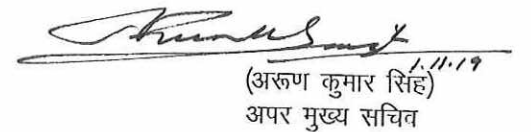 1.11.19
(अरूण कुमार सिंह)
अपर मुख्य सचिव